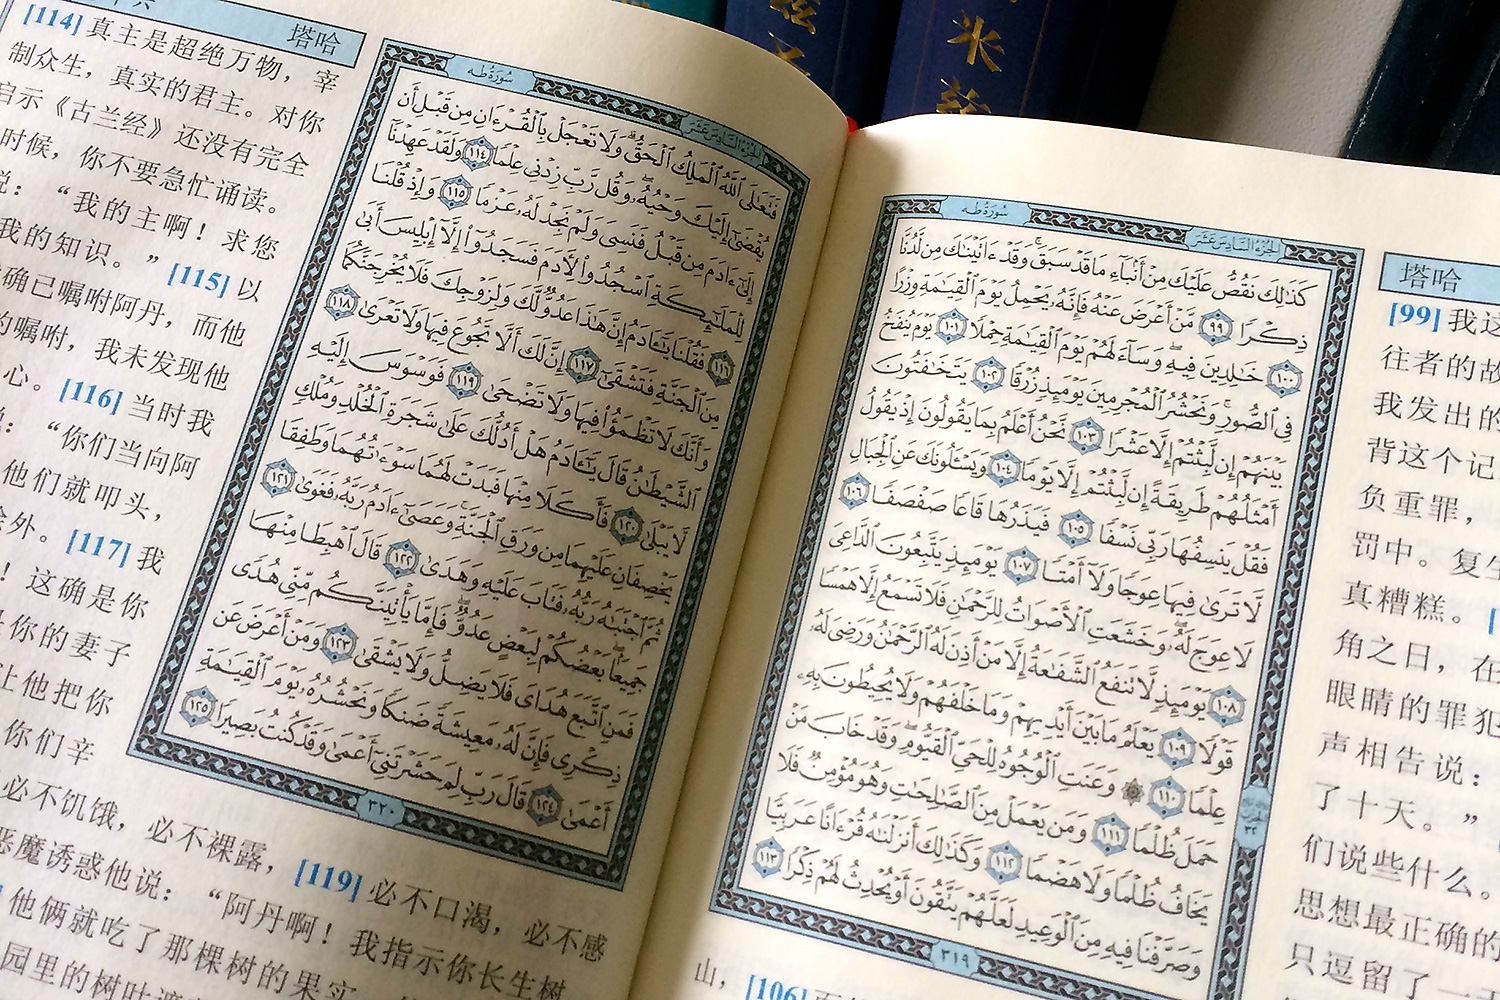 米
塔哈
سُورَةُ طه
الجُزْءُ السَّادِسَ عَشَرَ
كَذَٰلِكَ نَقُصُّ عَلَيْكَ مِنْ أَنۢبَآءِ مَا قَدْ سَبَقَ ۚ وَقَدْ ءَاتَيْنَٰكَ مِن لَّدُنَّا
ذِكْرًا ٩٩ مَّنْ أَعْرَضَ عَنْهُ فَإِنَّهُۥ يَحْمِلُ يَوْمَ ٱلْقِيَٰمَةِ وِزْرًا
١٠٠ خَٰلِدِينَ فِيهِ ۖ وَسَآءَ لَهُمْ يَوْمَ ٱلْقِيَٰمَةِ حِمْلًا ١٠١ يَوْمَ يُنفَخُ
فِى ٱلصُّورِ ۚ وَنَحْشُرُ ٱلْمُجْرِمِينَ يَوْمَئِذٍ زُرْقًا ١٠٢ يَتَخَٰفَتُونَ
بَيْنَهُمْ إِن لَّبِثْتُمْ إِلَّا عَشْرًا ١٠٣ نَّحْنُ أَعْلَمُ بِمَا يَقُولُونَ إِذْ يَقُولُ
أَمْثَلُهُمْ طَرِيقَةً إِن لَّبِثْتُمْ إِلَّا يَوْمًا ١٠٤ وَيَسْـَٔلُونَكَ عَنِ ٱلْجِبَالِ
فَقُلْ يَنسِفُهَا رَبِّى نَسْفًا ١٠٥ فَيَذَرُهَا قَاعًا صَفْصَفًا ١٠٦
لَّا تَرَىٰ فِيهَا عِوَجًا وَلَآ أَمْتًا ١٠٧ يَوْمَئِذٍ يَتَّبِعُونَ ٱلدَّاعِىَ
لَا عِوَجَ لَهُۥ ۖ وَخَشَعَتِ ٱلْأَصْوَاتُ لِلرَّحْمَٰنِ فَلَا تَسْمَعُ إِلَّا هَمْسًا
١٠٨ يَوْمَئِذٍ لَّا تَنفَعُ ٱلشَّفَٰعَةُ إِلَّا مَنْ أَذِنَ لَهُ ٱلرَّحْمَٰنُ وَرَضِىَ لَهُۥ
قَوْلًا ١٠٩ يَعْلَمُ مَا بَيْنَ أَيْدِيهِمْ وَمَا خَلْفَهُمْ وَلَا يُحِيطُونَ بِهِۦ
عِلْمًا ١١٠ ۞ وَعَنَتِ ٱلْوُجُوهُ لِلْحَىِّ ٱلْقَيُّومِ ۖ وَقَدْ خَابَ مَنْ
حَمَلَ ظُلْمًا ١١١ وَمَن يَعْمَلْ مِنَ ٱلصَّٰلِحَٰتِ وَهُوَ مُؤْمِنٌ فَلَا
يَخَافُ ظُلْمًا وَلَا هَضْمًا ١١٢ وَكَذَٰلِكَ أَنزَلْنَٰهُ قُرْءَانًا عَرَبِيًّا
وَصَرَّفْنَا فِيهِ مِنَ ٱلْوَعِيدِ لَعَلَّهُمْ يَتَّقُونَ أَوْ يُحْدِثُ لَهُمْ ذِكْرًا ١١٣
٣١٩
[99] 我这
往者的故
我发出的
背这个记
负重罪，
罚中。复生
真糟糕。[
角之日，在
眼睛的罪犯
声相告说：
了十天。”
们说些什么。
思想最正确的
只逗留了一
山，[106]
塔哈
سُورَةُ طه
الجُزْءُ السَّادِسَ عَشَرَ
فَتَعَٰلَى ٱللَّهُ ٱلْمَلِكُ ٱلْحَقُّ ۗ وَلَا تَعْجَلْ بِٱلْقُرْءَانِ مِن قَبْلِ أَن
يُقْضَىٰٓ إِلَيْكَ وَحْيُهُۥ ۖ وَقُل رَّبِّ زِدْنِى عِلْمًا ١١٤ وَلَقَدْ عَهِدْنَآ
إِلَىٰٓ ءَادَمَ مِن قَبْلُ فَنَسِىَ وَلَمْ نَجِدْ لَهُۥ عَزْمًا ١١٥ وَإِذْ قُلْنَا
لِلْمَلَٰٓئِكَةِ ٱسْجُدُوا۟ لِءَادَمَ فَسَجَدُوٓا۟ إِلَّآ إِبْلِيسَ أَبَىٰ
١١٦ فَقُلْنَا يَٰٓـَٔادَمُ إِنَّ هَٰذَا عَدُوٌّ لَّكَ وَلِزَوْجِكَ فَلَا يُخْرِجَنَّكُمَا
مِنَ ٱلْجَنَّةِ فَتَشْقَىٰٓ ١١٧ إِنَّ لَكَ أَلَّا تَجُوعَ فِيهَا وَلَا تَعْرَىٰ ١١٨
وَأَنَّكَ لَا تَظْمَؤُا۟ فِيهَا وَلَا تَضْحَىٰ ١١٩ فَوَسْوَسَ إِلَيْهِ
ٱلشَّيْطَٰنُ قَالَ يَٰٓـَٔادَمُ هَلْ أَدُلُّكَ عَلَىٰ شَجَرَةِ ٱلْخُلْدِ وَمُلْكٍ
لَّا يَبْلَىٰ ١٢٠ فَأَكَلَا مِنْهَا فَبَدَتْ لَهُمَا سَوْءَٰتُهُمَا وَطَفِقَا
يَخْصِفَانِ عَلَيْهِمَا مِن وَرَقِ ٱلْجَنَّةِ ۚ وَعَصَىٰٓ ءَادَمُ رَبَّهُۥ فَغَوَىٰ ١٢١
ثُمَّ ٱجْتَبَٰهُ رَبُّهُۥ فَتَابَ عَلَيْهِ وَهَدَىٰ ١٢٢ قَالَ ٱهْبِطَا مِنْهَا
جَمِيعًۢا ۖ بَعْضُكُمْ لِبَعْضٍ عَدُوٌّ ۖ فَإِمَّا يَأْتِيَنَّكُم مِّنِّى هُدًى
فَمَنِ ٱتَّبَعَ هُدَاىَ فَلَا يَضِلُّ وَلَا يَشْقَىٰ ١٢٣ وَمَنْ أَعْرَضَ عَن
ذِكْرِى فَإِنَّ لَهُۥ مَعِيشَةً ضَنكًا وَنَحْشُرُهُۥ يَوْمَ ٱلْقِيَٰمَةِ
أَعْمَىٰ ١٢٤ قَالَ رَبِّ لِمَ حَشَرْتَنِىٓ أَعْمَىٰ وَقَدْ كُنتُ بَصِيرًا ١٢٥
٣٢٠
[114] 真主是超绝万物，宰
制众生，真实的君主。对你
启示《古兰经》还没有完全
时候，你不要急忙诵读。
说：“我的主啊！求您
我的知识。”[115] 以
确已嘱咐阿丹，而他
的嘱咐，我未发现他
心。[116] 当时我
：“你们当向阿
他们就叩头，
除外。[117] 我
！这确是你
你的妻子
让他把你
你们辛
必不饥饿，必不裸露，
[119] 必不口渴，必不感
恶魔诱惑他说：“阿丹啊！我指示你长生树
他俩就吃了那棵树的果实
园里的树叶遮